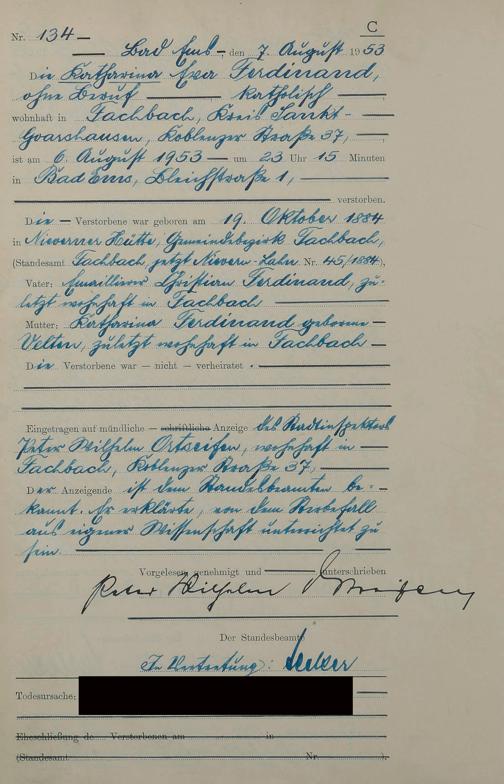 C
Nr. 134
Bad Ems, den 7. August 1953
Die Katharina Eva Ferdinand,
ohne Beruf katholisch
wohnhaft in Fachbach, Kreis Sankt-
Goarshausen, Koblenzer Straße 37,
ist am 6. August 1953 um 23 Uhr 15 Minuten
in Bad Ems, Bleichstraße 1,
verstorben.
Die Verstorbene war geboren am 19. Oktober 1884
in Nieverner Hütte, Gemeindebezirk Fachbach,
(Standesamt Fachbach, jetzt Nievern-Lahn Nr. 45/1884),
Vater: Emaillierer Christian Ferdinand, zu-
letzt wohnhaft in Fachbach
Mutter: Katharina Ferdinand geborene
Velten, zuletzt wohnhaft in Fachbach
Die Verstorbene war — nicht — verheiratet.
Eingetragen auf mündliche — schriftliche Anzeige des Stadtinspektors
Peter Wilhelm Ortseifen, wohnhaft in
Fachbach, Koblenzer Straße 37,
Der Anzeigende ist dem Standesbeamten be-
kannt. Er erklärte, von dem Sterbefall
aus eigener Wissenschaft unterrichtet zu
sein.
Vorgelesen, genehmigt und unterschrieben
Peter Wilhelm Ortseifen
Der Standesbeamte
In Vertretung:
Todesursache:
Eheschließung de Verstorbenen am in
(Standesamt Nr. ).